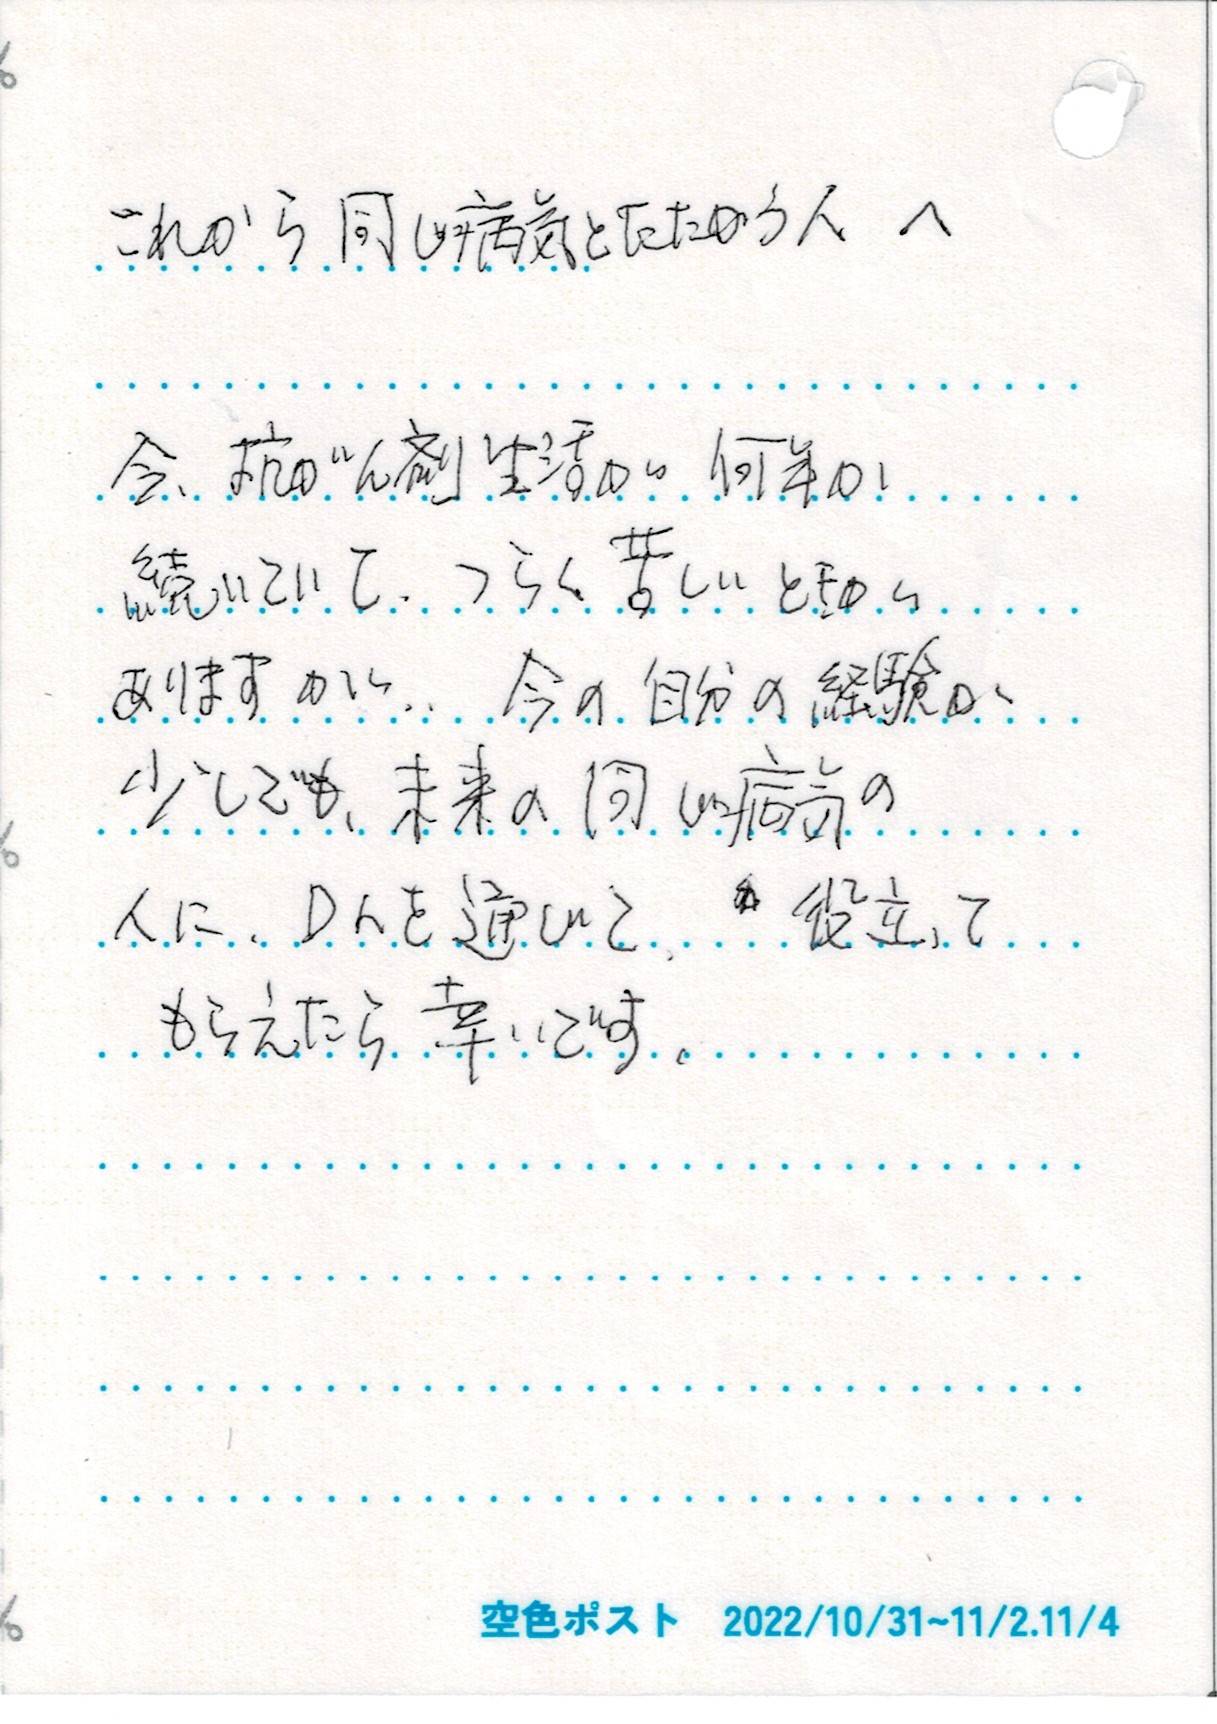 これから同じ病気とたたかう人 へ
今、抗がん剤生活が何年か
続いていて、つらく苦しいときが
ありますが、、今の自分の経験が
少しでも、未来の同じ病気の
人に、Drを通じて、役立って
もらえたら幸いです。
空色ポスト 2022/10/31~11/2.11/4